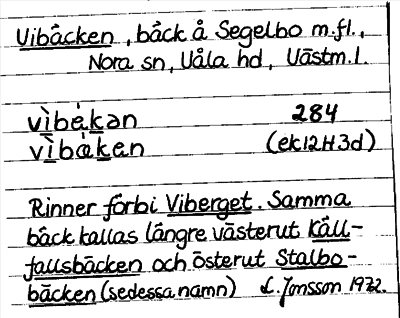 Vibäcken, bäck å Segelbo m.fl.,
Nora sn, Våla hd, Västm.l.
vìbɛ̀kan 284
vìbaken (ek12H3d)
Rinner förbi Viberget. Samma
bäck kallas längre västerut Käll-
fallsbäcken och österut Stalbo-
bäcken (se dessa namn) L. Jonsson 1972.